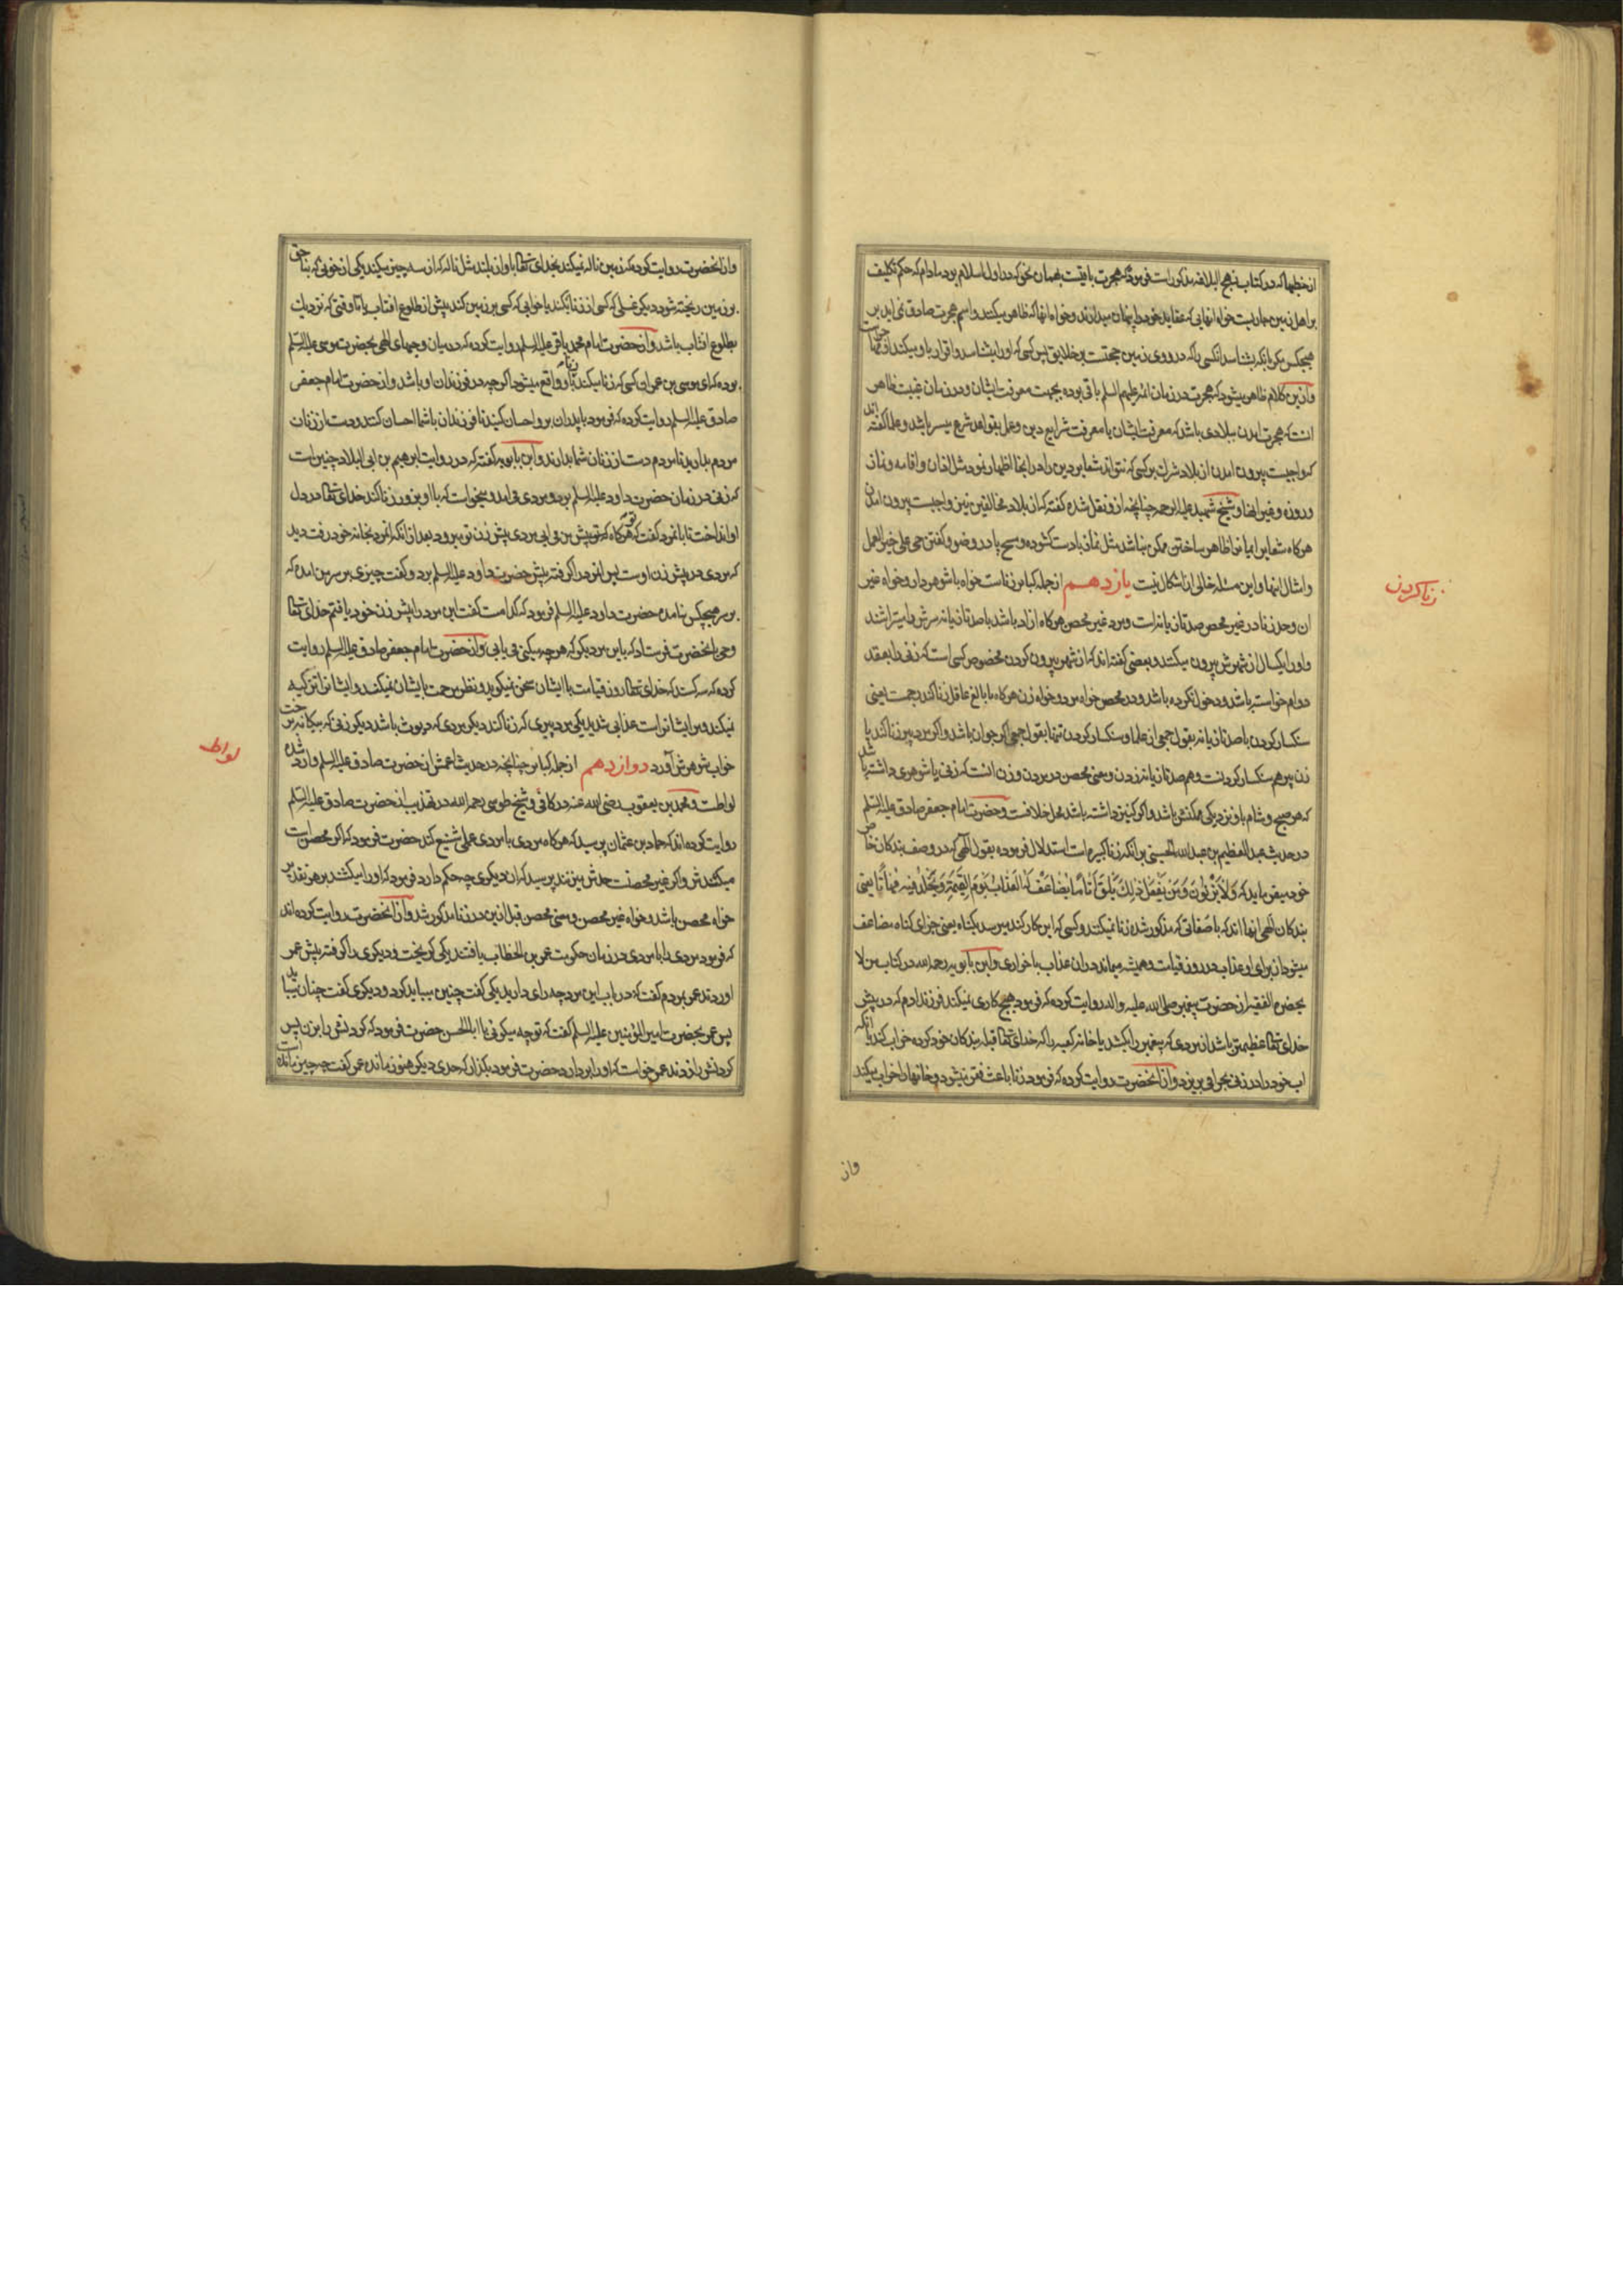 از خطبها که در کتاب نهج البلاغه مذکور است فرموده که هجرت باقیست بهمان نحو که در اول اسلام بود مادام که حکم تکلیف
بر اهل زمین جاریست خواه انهایی که عقاید خود را پنهان میدارند و خواه انها که ظاهر میکنند و اسم هجرت صادق نمی اید بر
هیچکس مکر بانکه بشناسد انکسی را که در روی زمین حجتست بر خلایق پس کسی که او را بشناسد و اقرار باو بیکند او مهاجر است
و ازین کلام ظاهر میشود که هجرت در زمان ائمه علیهم السلم باقی بوده بجهت معرفت ایشان و در زمان غیبت ظاهر
انست که هجرت امدن ببلادی باشد که معرفت ایشان یا معرفت شرایع دین و عمل بقواعد شرع میسر باشد و علما کفته اند
که واجبست بیرون امدن از بلاد شرک بر کسی که نتواند شعایر دین را در انجا اظهار نمود مثل اذان و اقامه و نماز
و روزه و غیر اینها و شیخ شهید علیه الرحمه چنانچه از و نقل شده کفته که از بلاد مخالفین نیز واجبست بیرون امدن
هرکاه شعایر ایمان را ظاهر ساختن ممکن نباشد مثل نماز با دست کشوده و مسح پا در وضو و کفتن حی علی خیر العمل
و امثال اینها و این مسئله خالی از اشکال نیست یازدهم از جمله کبایر زناست خواه با شوهردار و خواه غیر
ان و حد زنا در غیر محصن صد تازیانه است و مرد غیر محصن هرکاه ازاد باشد با صد تازیانه سرش را میتراشند
و او را یکسال از شهرش بیرون میکنند و بعضی کفته اند که از شهر بیرون کردن مخصوص کسی است که زنی را بعقد
دوام خواسته باشد و دخول نکرده باشد و در محصن خواه مرد و خواه زن هرکاه با بالغ عاقل زنا کند رجمست یعنی
سنکسار کردن با صد تازیانه بقول جمعی از علما و سنکسار کردن تنها بقول جمعی اکر جوان باشد و اکر مرد پیر زنا کند یا
زن پیر هم سنکسار کردنست و هم صد تازیانه زدن و معنی محصن در مرد و زن انست که زنی یا شوهری داشته باشد
که هر صبح و شام باو نزدیکی ممکنش باشد و اکر کنیز داشته باشد محل خلافست و حضرت امام جعفر صادق علیه السلم
در حدیث عبد العظیم بن عبدالله الحسنی بر انکه زنا کبیره است استدلال فرموده بقول الهی که در وصف بندکان خاص
خود میفرماید که وَلَا يَزْنُونَ وَمَنْ يَفْعَلْ ذَلِكَ يَلْقَ أَثَامًا يُضَاعَفْ لَهُ الْعَذَابُ يَوْمَ الْقِيمَةِ وَيَخْلُدْ فِيهِ مُهَانًا یعنی
بندکان الهی انها اند که با صفاتی که مذکور شده زنا نمیکنند و کسی که این کار کند میرسد بکناه یعنی جزای کناه مضاعف
میشود از برای او عذاب در روز قیامت و همیشه میماند در ان عذاب با خواری و ابن بابویه رحمه الله در کتاب من لا
یحضره الفقیه از حضرت پیغمبر صلی الله علیه واله روایت کرده که فرمود هیچ کاری نمیکند فرزند ادم که در پیش
خدای تعالی عظیمتر باشد از مردی که پیغمبری را بکشد یا خانه کعبه را که خدای تعالی قبله بندکان خود کرده خراب کند یا انکه
اب خود را در زنی بحرام بریزد و از انحضرت روایت کرده که فرمود زنا باعث فقر میشود و خانها را خراب میکند
زنا کردن
واز
و از انحضرت روایت کرده که زمین ناله نمیکند بخدای تعالی باواز بلند مثل ناله که از سه چیز میکند یکی از خونی که بناحق
بر زمین ریخته شود دیکر غسلی که کسی از زنا بکند یا خوابی که کسی بر زمین کند پیش از طلوع افتاب یا تا وقتی که نزدیک
بطلوع افتاب باشد و از حضرت امام محمد باقر علیه السلم روایت کرده که در میان وحیهای الهی بحضرت موسی علیه السلم
بوده که ای موسی بن عمران کسی که زنا میکند زنا باو واقع میشود اکر چه در فرزندان او باشد و از حضرت امام جعفر
صادق علیه السلم روایت کرده که فرمود با پدران بر و احسان کنید تا فرزندان با شما احسان کنند و دست از زنان
مردم بدارید تا مردم دست از زنان شما بدارند و ابن بابویه کفته که در روایت ابرهیم بن ابی البلاد چنین است
که زنی در زمان حضرت داود علیه السلم بود و مردی می امد و میخواست که با او بزور زنا کند خدای تعالی در دل
او انداخت تا بانمرد کفت که هرکاه که تو پیش من می ایی مردی پیش زن تو میرود بعد از انکه انمرد بخانه خود رفت دید
که مردی در پیش زن اوست پس انمرد را کرفته پیش حضرت داود علیه السلم برد و کفت چیزی بر سر من امده که
بر سر هیچکس نیامده حضرت داود علیه السلم فرمود که کدامست کفت این مرد را پیش زن خود یافتم خدای تعالی
وحی بانحضرت فرستاد که باین مرد بکو که هر چه میکنی می یابی و از حضرت امام جعفر صادق علیه السلم روایت
کرده که سه کسند که خدای تعالی روز قیامت با ایشان سخن نمیکوید و نظر مرحمت بایشان نمیکند و ایشانرا تزکیه
نمیکند و مر ایشانراست عذابی شدید یکی مرد پیری که زنا کند دیکر مردی که دیوث باشد دیکر زنی که بیکانه بر رخت
خواب شوهرش آورد دوازدهم از جمله کبایر چنانچه در حدیث اعمش از حضرت صادق علیه السلم وارد شده
لواطست و محمد بن یعقوب رضی الله عنه در کافی و شیخ طوسی رحمه الله در تهذیب از حضرت صادق علیه السلم
روایت کرده اند که حماد بن عثمان پرسید که هرکاه مردی با مردی عملی شنیع کند حضرت فرمود که اکر محصن است
میکشندش و اکر غیر محصنست حدش میزنند پرسید که ان دیکری چه حکم دارد فرمود که او را میکشند بر هر تقدیر
خواه محصن باشد و خواه غیر محصن و معنی محصن قبل ازین در زنا مذکور شد و از انحضرت روایت کرده اند
که فرمود مردی را با مردی در زمان حکومت عمر بن الخطاب یافتند یکی کریخت و دیکری را کرفته پیش عمر
اوردند عمر بمردم کفت که در باب این مرد چه رای دارید یکی کفت چنین میباید کرد و دیکری کفت چنان میباید
پس عمر بحضرت امیر المؤمنین علیه السلم کفت که تو چه میکوئی یا ابا الحسن حضرت فرمود که کردنش را بزن پس
کردنش را زدند عمر خواست که او را بردارد حضرت فرمود بکذار که حدی دیکر هنوز مانده عمر کفت چه چیز مانده است
لواط